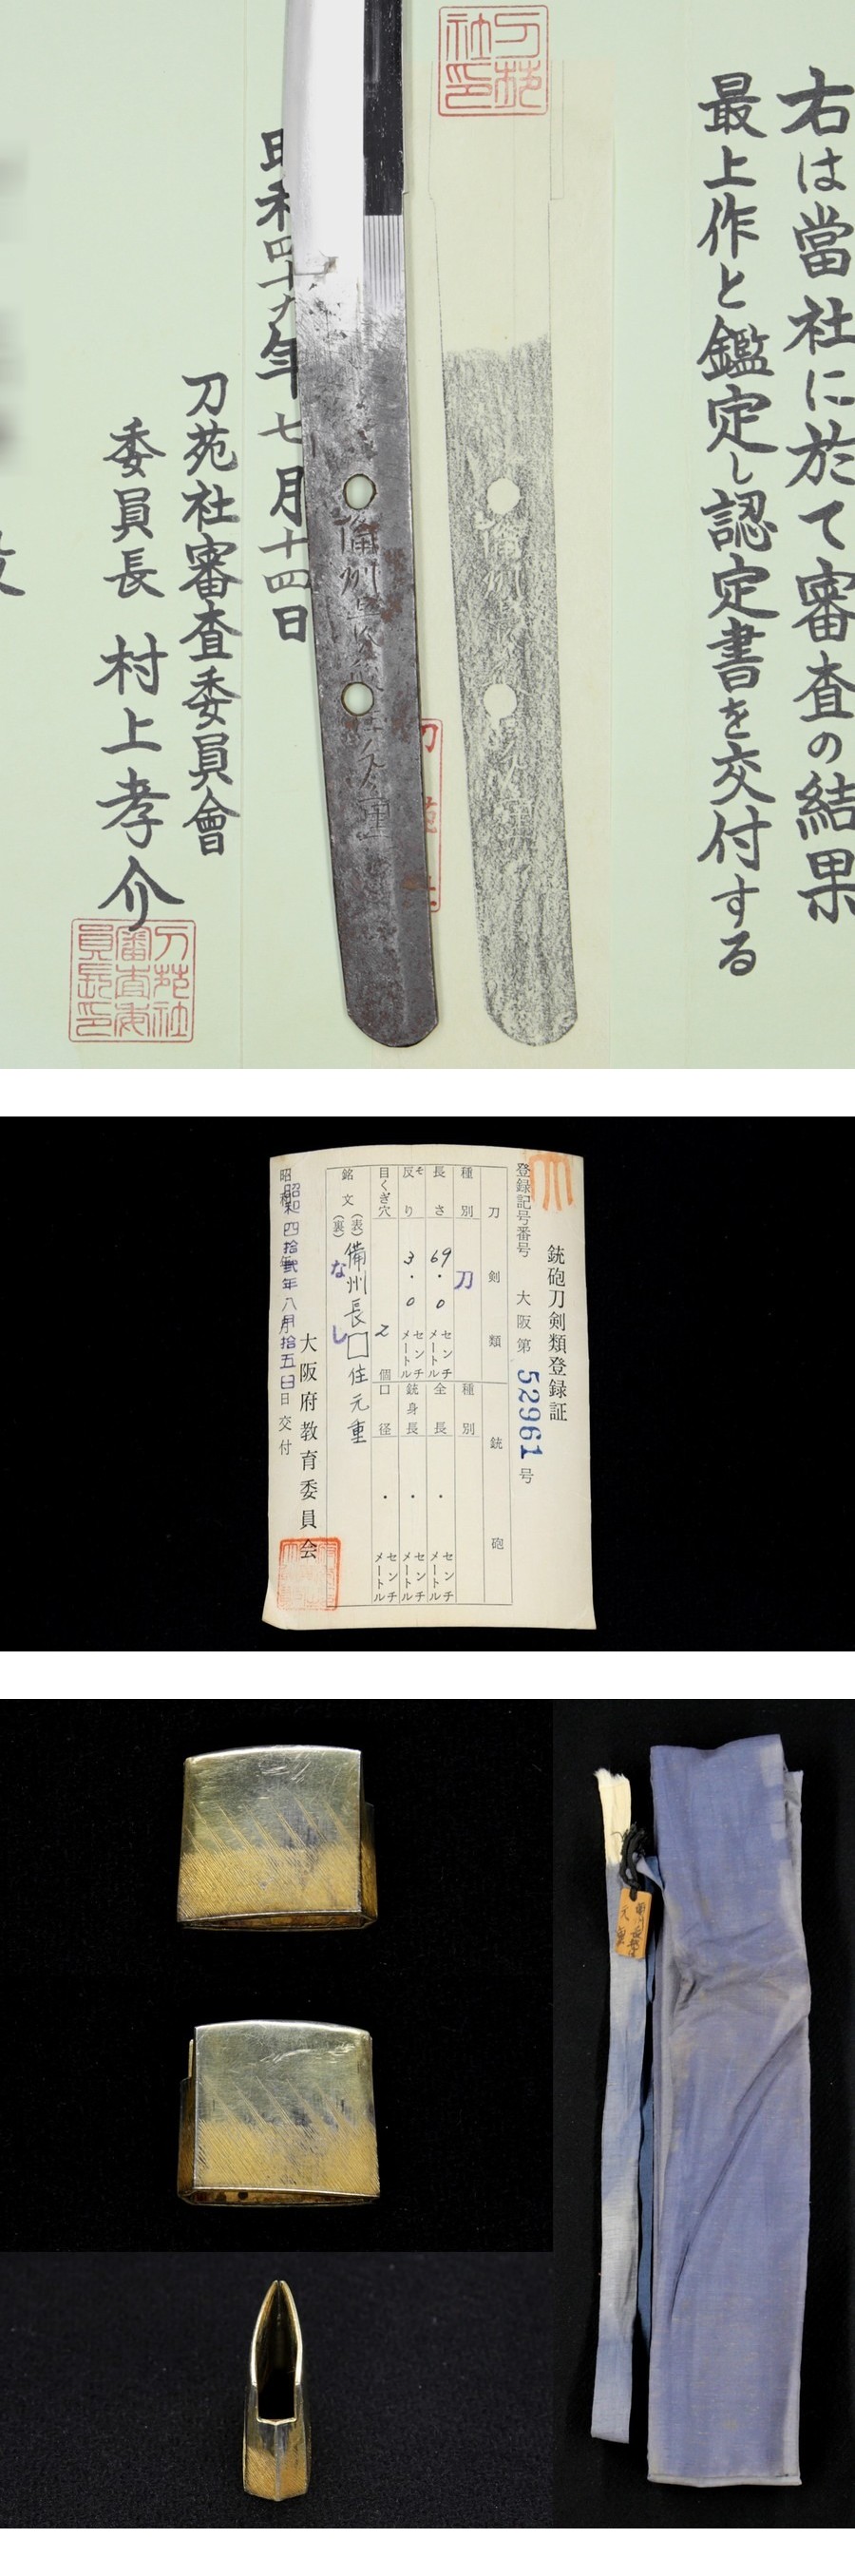 刀苑社印
右は當社に於て審査の結果
最上作と鑑定し認定書を交付する
昭和四十六年七月十四日
刀苑社審査委員會
委員長 村上孝介
刀苑社審査委員長印
備州長 住元重
銃砲刀剣類登録証
登録記号番号 大阪第 52961 号
刀剣類 銃砲
種別 刀 種別
長さ 69.0 センチメートル 全長 . センチメートル
反り そ 3.0 センチメートル 銃身長 . センチメートル
目くぎ穴 2 個 口径 . センチメートル
銘文 (表) 備州長□住元重
(裏) なし
大阪府教育委員会
昭和 四拾弐年八月拾五日 日交付
元重